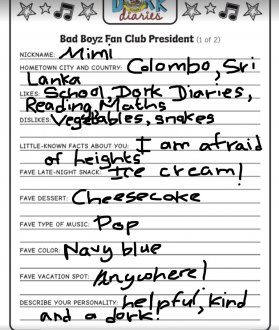 DORK
diaries
Bad Boyz Fan Club President (1 of 2)
NICKNAME: Mimi
HOMETOWN CITY AND COUNTRY: Colombo, Sri
Lanka
LIKES: School, Dork Diaries,
Reading, Maths
DISLIKES: Vegetables, snakes
LITTLE-KNOWN FACTS ABOUT YOU: I am afraid
of heights
FAVE LATE-NIGHT SNACK: Ice cream!
FAVE DESSERT: Cheesecake
FAVE TYPE OF MUSIC: Pop
FAVE COLOR: Navy blue
FAVE VACATION SPOT: Anywhere!
DESCRIBE YOUR PERSONALITY: helpful, kind
and a dork!